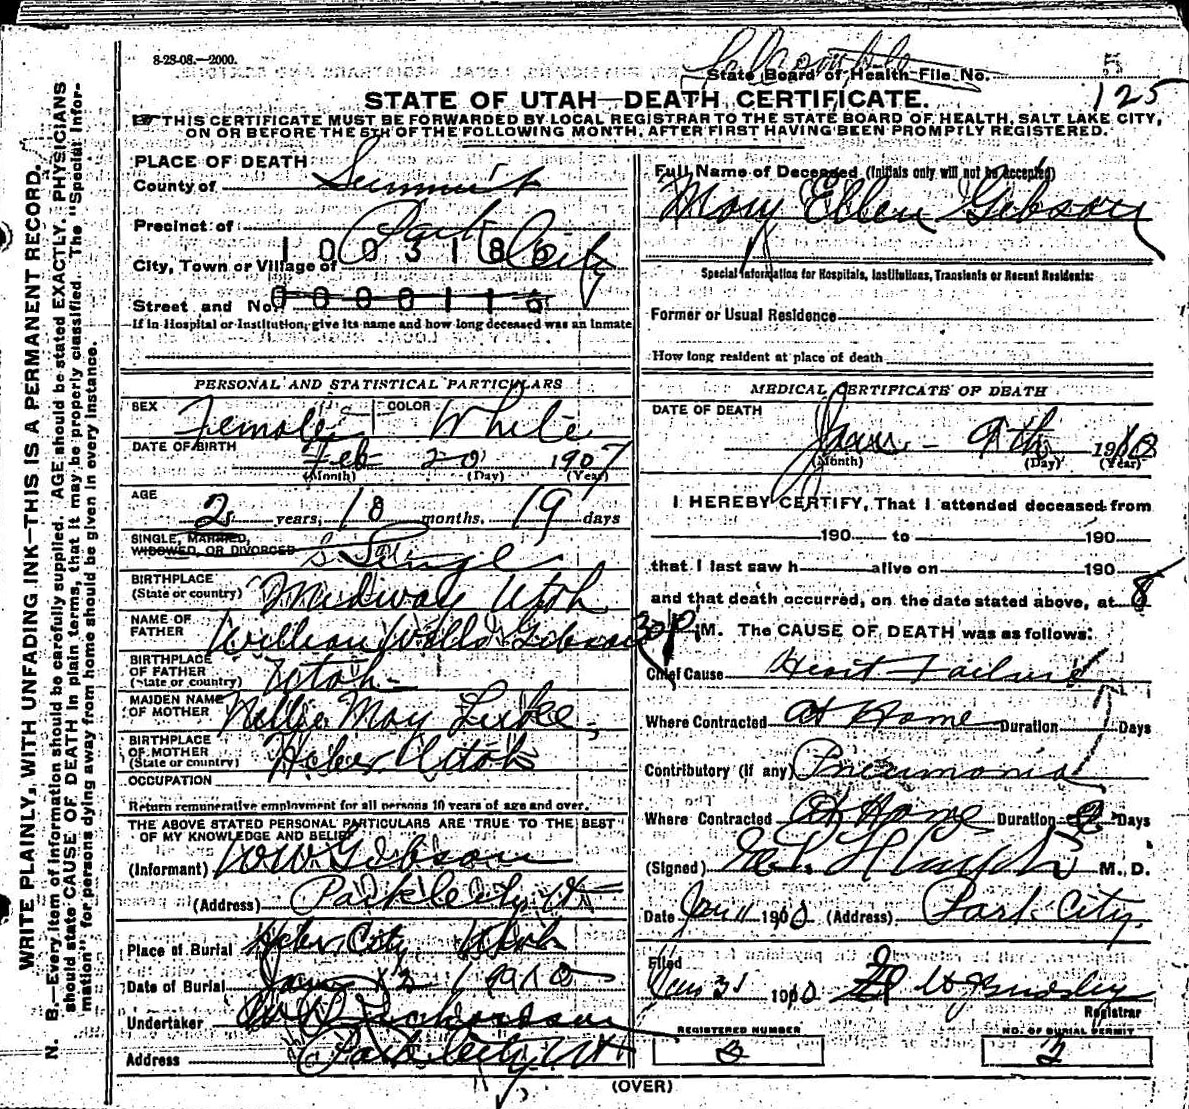 8-28-08.—2000.
State Board of Health File No. 5
125
STATE OF UTAH—DEATH CERTIFICATE.
THIS CERTIFICATE MUST BE FORWARDED BY LOCAL REGISTRAR TO THE STATE BOARD OF HEALTH, SALT LAKE CITY,
ON OR BEFORE THE 5TH OF THE FOLLOWING MONTH, AFTER FIRST HAVING BEEN PROMPTLY REGISTERED.
WRITE PLAINLY, WITH UNFADING INK—THIS IS A PERMANENT RECORD.
N. B.—Every item of information should be carefully supplied. AGE should be stated EXACTLY. PHYSICIANS
should state CAUSE OF DEATH in plain terms, that it may be properly classified. The "Special Infor-
mation" for persons dying away from home should be given in every instance.
PLACE OF DEATH
County of Summit
Precinct of
Park City
1003186
City, Town or Village of
Street and No. 0000116
If in Hospital or Institution, give its name and how long deceased was an inmate
PERSONAL AND STATISTICAL PARTICULARS
SEX Female COLOR White
DATE OF BIRTH Feb 20 1907
(Month) (Day) (Year)
AGE
2 years, 10 months, 19 days
SINGLE, MARRIED,
WIDOWED, OR DIVORCED S. Single
BIRTHPLACE
(State or country) Midway Utah
NAME OF
FATHER William Gibson
BIRTHPLACE
OF FATHER
(State or country) Utah
MAIDEN NAME
OF MOTHER Nellie May Luke
BIRTHPLACE
OF MOTHER
(State or country) Heber Utah
OCCUPATION
Return remunerative employment for all persons 10 years of age and over.
THE ABOVE STATED PERSONAL PARTICULARS ARE TRUE TO THE BEST
OF MY KNOWLEDGE AND BELIEF
(Informant) W W Gibson
(Address) Park City Ut
Place of Burial Heber City Utah
Date of Burial Jan 12 1910
Undertaker Richardson
Address Park City, Ut
Full Name of Deceased (Initials only will not be accepted)
Mary Ellen Gibson
Special Information for Hospitals, Institutions, Transients or Recent Residents:
Former or Usual Residence
How long resident at place of death
MEDICAL CERTIFICATE OF DEATH
DATE OF DEATH
Jan - 9th 1910
(Month) (Day) (Year)
I HEREBY CERTIFY, That I attended deceased from
190 to 190
that I last saw h alive on 190
and that death occurred, on the date stated above, at 8
30 P. M. The CAUSE OF DEATH was as follows:
Chief Cause Heart Failure
Where Contracted At Home Duration Days
Contributory (if any) Pneumonia
Where Contracted At Home Duration Days
(Signed) M. D.
Date Jan 11 1910 (Address) Park City
Filed
Jan 31 1910
Registrar
REGISTERED NUMBER
NO. OF BURIAL PERMIT
2
(OVER)